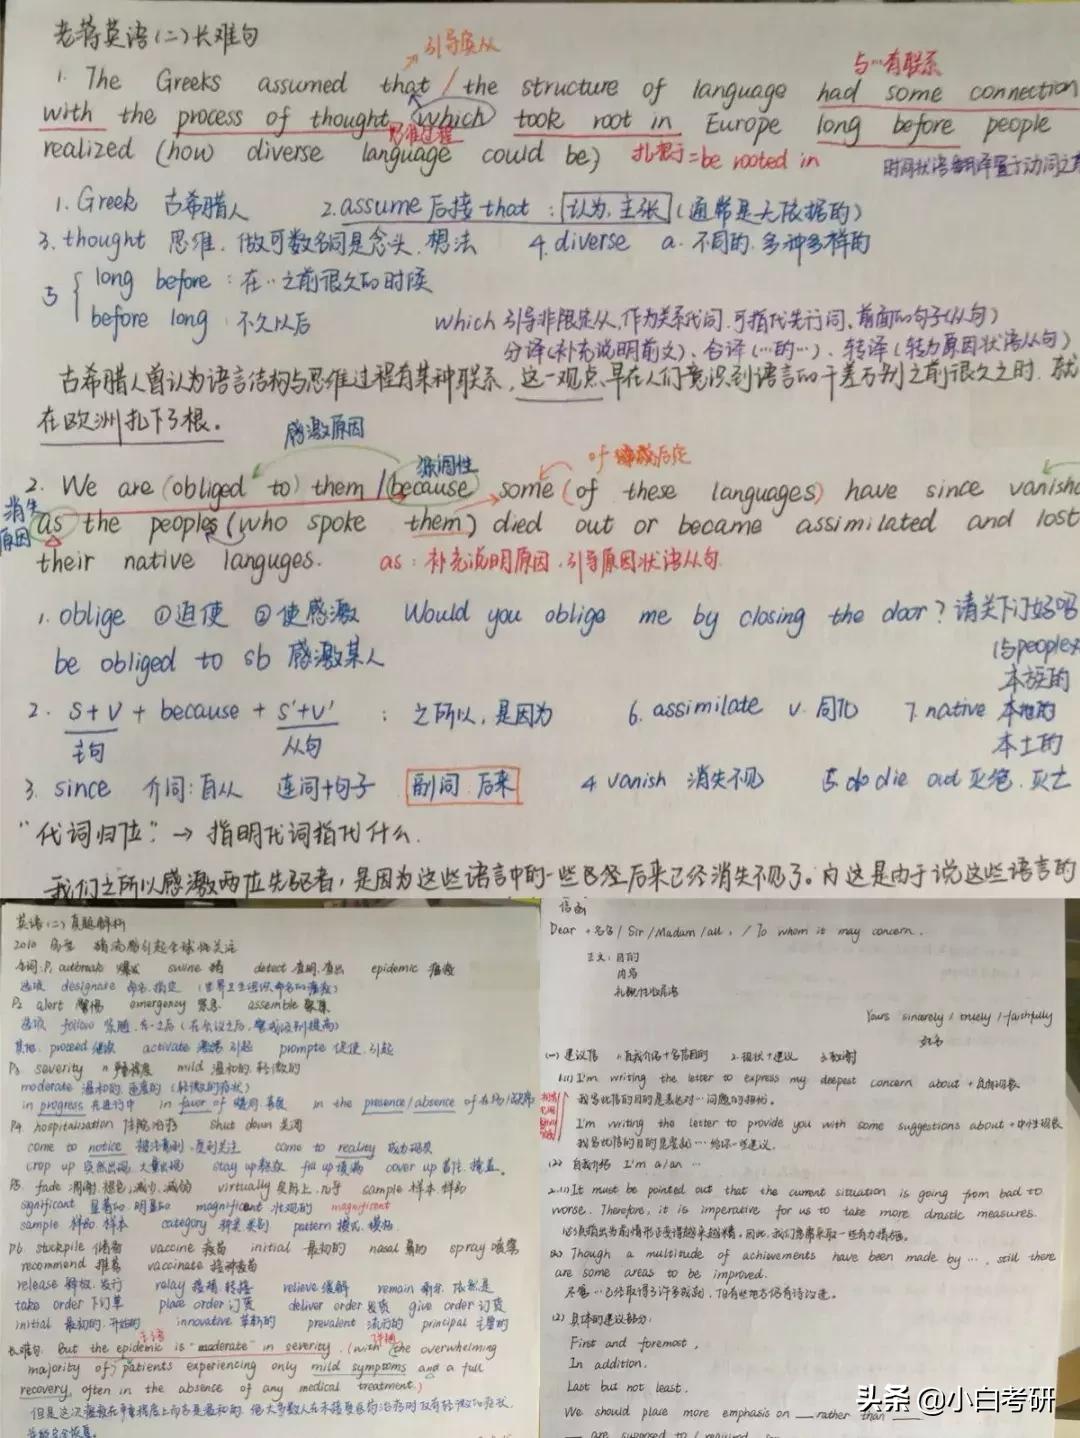 老蒋英语(二)长难句
引导宾从
与…有联系
1. The Greeks assumed that / the structure of language had some connection
with the process of thought, which took root in Europe long before people
思维过程
realized (how) diverse language could be) 扎根于=be rooted in
1. Greek 古希腊人 2. assume 后接 that : 认为, 主张 (通常是无依据的)
3. thought 思维. 做可数名词是念头. 想法 4. diverse a. 不同的. 多种多样的
5 { long before : 在…之前很久的时候
before long 不久以后
which 引导非限定从, 作为关系代词, 可指代先行词、前面的句子(从句)
分译(补充说明前文)、合译(…的…)、转译(转为原因状语从句)
古希腊人曾认为语言结构与思维过程有某种联系, 这一观点, 早在人们意识到语言的千差万别之前很久之时, 就
在欧洲扎下了根。
感激原因
强调性
2. We are (obliged to) them / (because) some (of these languages) have since vanishe
消失
原因
as the peoples (who spoke them) died out or became assimilated and lost
their native languges. as : 补充说明原因. 引导原因状语从句
1. oblige ①迫使 ②使感激 Would you oblige me by closing the door? 请关下门好吗
be obliged to sb 感激某人
2. S+V + because + s'+v' : 之所以, 是因为 6. assimilate v. 同化 7. native 本地的
主句 从句
本族的
本土的
3. since 介词: 自从 连词+句子 副词 后来 4 vanish 消失不见 die out 灭绝. 灭亡
"代词归位" → 指明代词指代什么.
我们之所以感激两位先驱者, 是因为这些语言中的一些后来已经消失不见了. 这是由于说这些语言的
英语(二)真题解析
2010 猪流感引起全球性关注
P1 outbreak 爆发 swine 猪 detect 查明. 查出 epidemic
designate 命名. 指定
P2 alert 警惕 emergency 紧急 assemble 聚集
follow
proceed 继续 activate 激活 引起 prompte 促使. 引起
P3 severity n mild 温和的 轻微的
moderate 温和的. 适度的 (轻微的症状)
in progress 在进行中 in favor of in the presence/absence of
P4. hospitalization 住院治疗 shut down 关闭
come to notice come to reality 成为现实
crop up 突然出现 stay up 熬夜 fill up 填满 cover up 盖住. 掩盖.
P5. fade 凋谢. 褪色. 减少. 减弱 virtually 实际上. 几乎 sample 样本 样品
significant 显著的. 明显的 magnificent 壮观的 magnificent
sample 样品 样本 category 种类 类别 pattern 模式. 模板.
P6. stockpile 储备 vaccine 疫苗 initial 最初的 nasal 鼻的 spray 喷雾
recommend 推荐 vaccinate 接种疫苗
release 释放. 发行 relay 接替. 转播 relieve 缓解 remain
take order 下订单 place order 订货 deliver order 发货 give order 订货
initial 最初的. 开始的 innovative 革新的 prevalent 流行的 principal 主要的
主语
长难句. But the epidemic is "moderate" in severity. (with (the overwhelming
majority of) patients experiencing only mild symptoms and a full
recovery, often in the absence of any medical treatment.)
信函
Dear + 名字 / Sir / Madam / all, / To whom it may concern.
正文: 目的
内容
礼貌性收尾语
Yours sincerely / truely / faithfully
姓名
(一) 建议信 1. 自我介绍+写信目的 2. 现状+建议
(1) I'm writing the letter to express my deepest concern about +
I'm writing the letter to provide you with some suggestions about +
(2) 自我介绍 I'm a/an …
2.(1) It must be pointed out that the current situation is going from bad to
worse. Therefore, it is imperative for us to take more drastic measures.
Though a multitude of achievements have been made by …, still there
are some areas to be improved.
(2) 具体的建议部分:
First and foremost,
In addition,
Last but not least,
We should place more emphasis on ___ rather than ___
are supposed to / required
头条 @小白考研